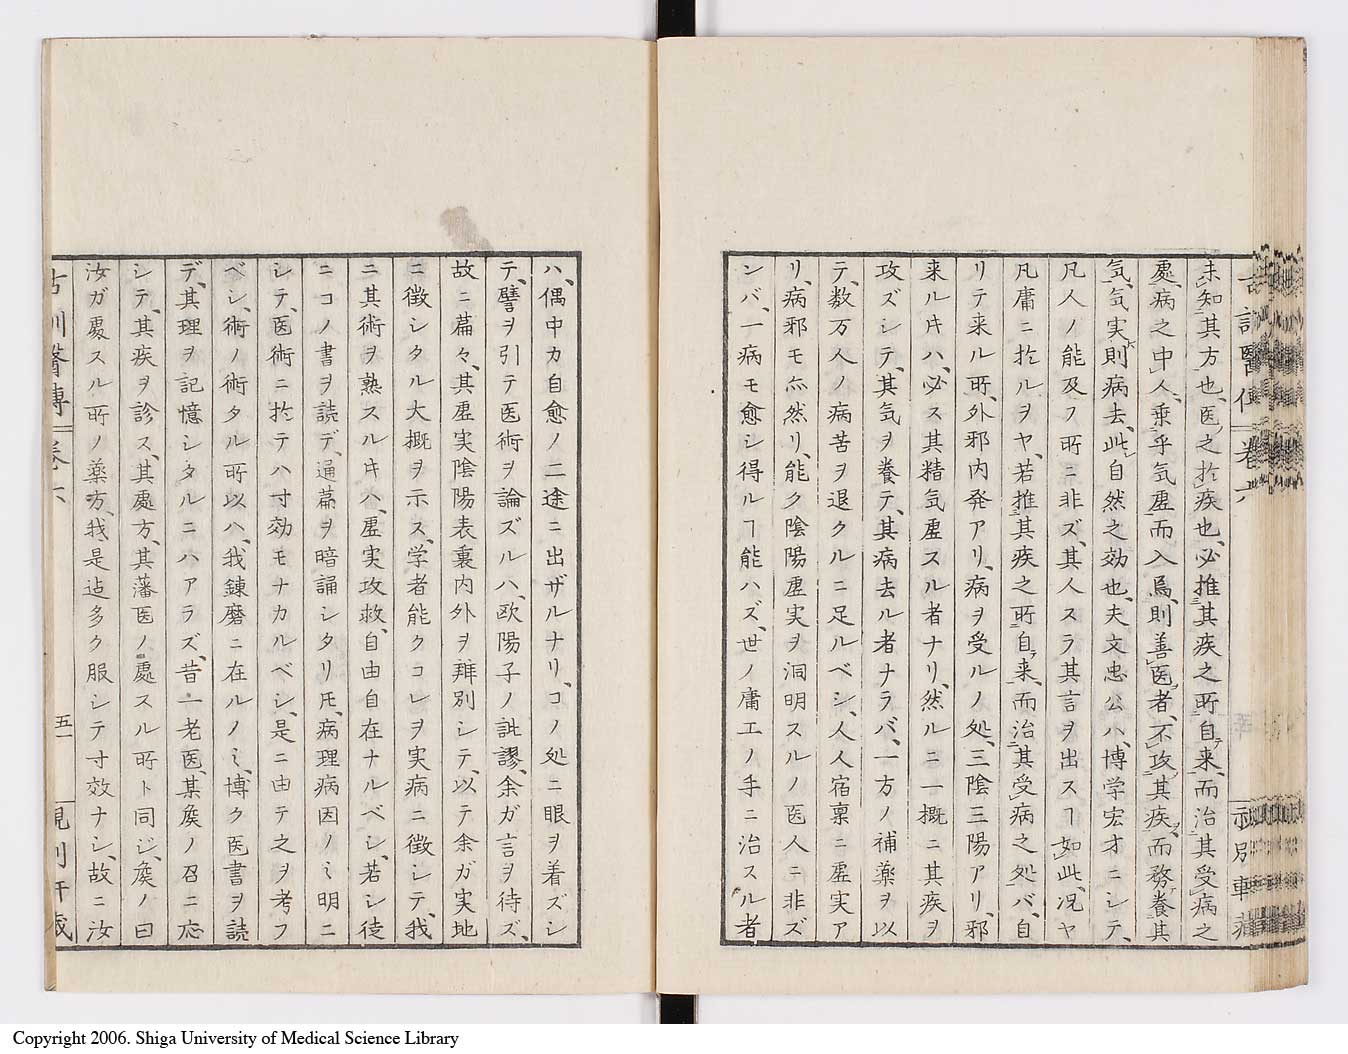 未知其方也、医之於疾也、必推其疾之所自来、而治其受病之
處、病之中人、乗乎気虚而入焉、則善医者、不攻其疾、而務養其
気、気実則病去、此自然之効也、夫文忠公ハ、博学宏才ニシテ、
凡人ノ能及フ所ニ非ズ、其人スラ其言ヲ出スヿ如此、况ヤ
凡庸ニ於ルヲヤ、若推其疾之所自来、而治其受病之処バ、自
リテ来ル所、外邪内発アリ、病ヲ受ルノ処、三陰三陽アリ、邪
来ル𪜈ハ、必ス其精気虚スル者ナリ、然ルニ一概ニ其疾ヲ
攻ズシテ、其気ヲ養テ、其病去ル者ナラバ、一方ノ補薬ヲ以
テ、数万人ノ病苦ヲ退クルニ足ルベシ、人人宿稟ニ虚実ア
リ、病邪モ亦然リ、能ク陰陽虚実ヲ洞明スルノ医人ニ非ズ
ンバ、一病モ愈シ得ルヿ能ハズ、世ノ庸工ノ手ニ治スル者
ハ、偶中カ自愈ノ二途ニ出ザルナリ、コノ処ニ眼ヲ着ズシ
テ、譬ヲ引テ医術ヲ論ズルハ、欧陽子ノ訛謬、余ガ言ヲ待ズ、
故ニ篇々、其虚実陰陽表裏内外ヲ辨別シテ、以テ余ガ実地
ニ徴シタル大概ヲ示ス、学者能クコレヲ実病ニ徴シテ、我
ニ其術ヲ熟スル𪜈ハ、虚実攻救、自由自在ナルベシ、若シ徒
ニコノ書ヲ読デ、通篇ヲ暗誦シタリ𪜈、病理病因ノミ明ニ
シテ、医術ニ於テハ寸効モナカルベシ、是ニ由テ之ヲ考フ
ベシ、術ノ術タル所以ハ、我錬磨ニ在ルノミ、博ク医書ヲ読
デ、其理ヲ記憶シタルニハアラズ、昔一老医、某矦ノ召ニ応
シテ、其疾ヲ診ス、其處方、其藩医ノ處スル所ト同ジ、矦ノ曰
汝ガ處スル所ノ薬方、我是迠多ク服シテ寸效ナシ、故ニ汝
古訓醫傳 巻六 五